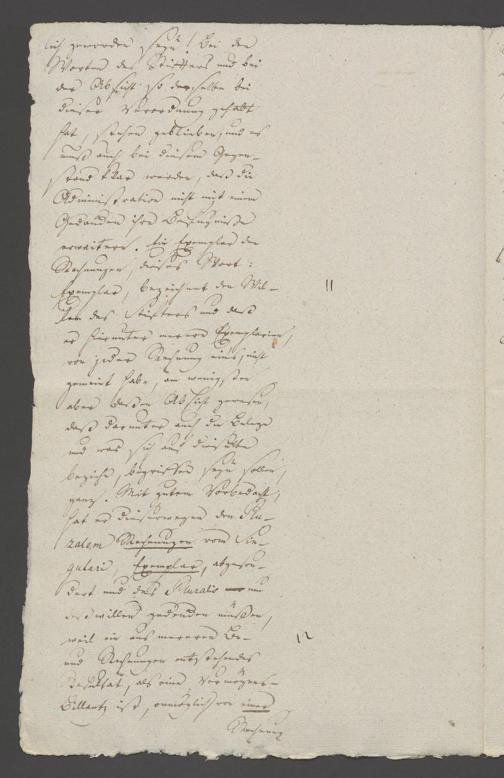 lich geworden seyn! Bei den
Worten des Stifters und bei
der Absicht so derselbe bei
dieser Verordnung gehabt
hat, stehen geblieben, und es
muß auch bei diesem Gegen-
stand klar werden, daß die
Administration nicht mit einem
Gedanken ihre Befugniße
erweitere. Ein Exemplar der
Rechnungen, dieses Wort:
Exemplar, bezeichnet den Wil-
len des Stifters und daß
er hierunter merere Exemplarien,
von jeder Rechnung eins, nicht
gemeint habe, am wenigsten
aber deßen Absicht gewesen,
daß darunter auch die Belege
und was sich auf dieselbe
beziehe, begriffen seyn sollen,
ganz. Mit gutem Vorbedacht,
hat er dieserwegen den Plu-
ralem Rechnungen vom Sin-
gulari, Exemplar, abgeson-
dert und des Pluralis nur
deswillen gedenken müßen,
weil ein aus mereren Be-
und Rechnungen entstehendes
Resultat, als eine Vermögens-
Billantz ist, onmöglich von einer
Rechnung
11
12